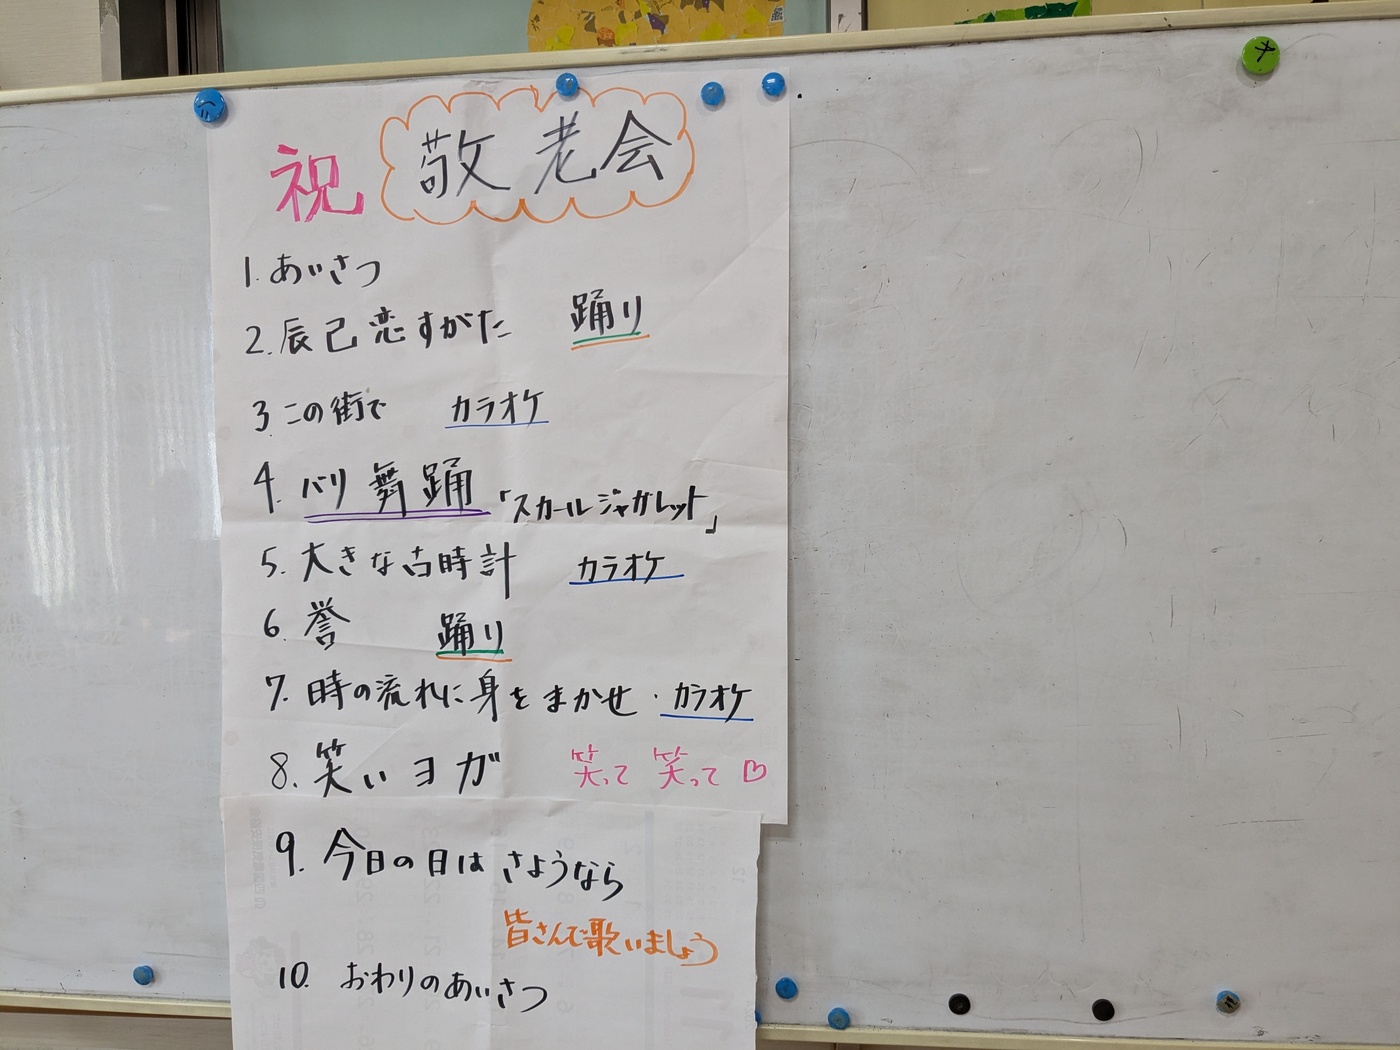 祝 敬老会
1. あいさつ
2. 辰己恋すがた 踊り
3. この街で カラオケ
4. バリ舞踊「スカールジャガレット」
5. 大きな古時計 カラオケ
6. 誉 踊り
7. 時の流れに身をまかせ・カラオケ
8. 笑いヨガ 笑って 笑って♡
9. 今日の日は さようなら
皆さんで歌いましょう
10. おわりのあいさつ